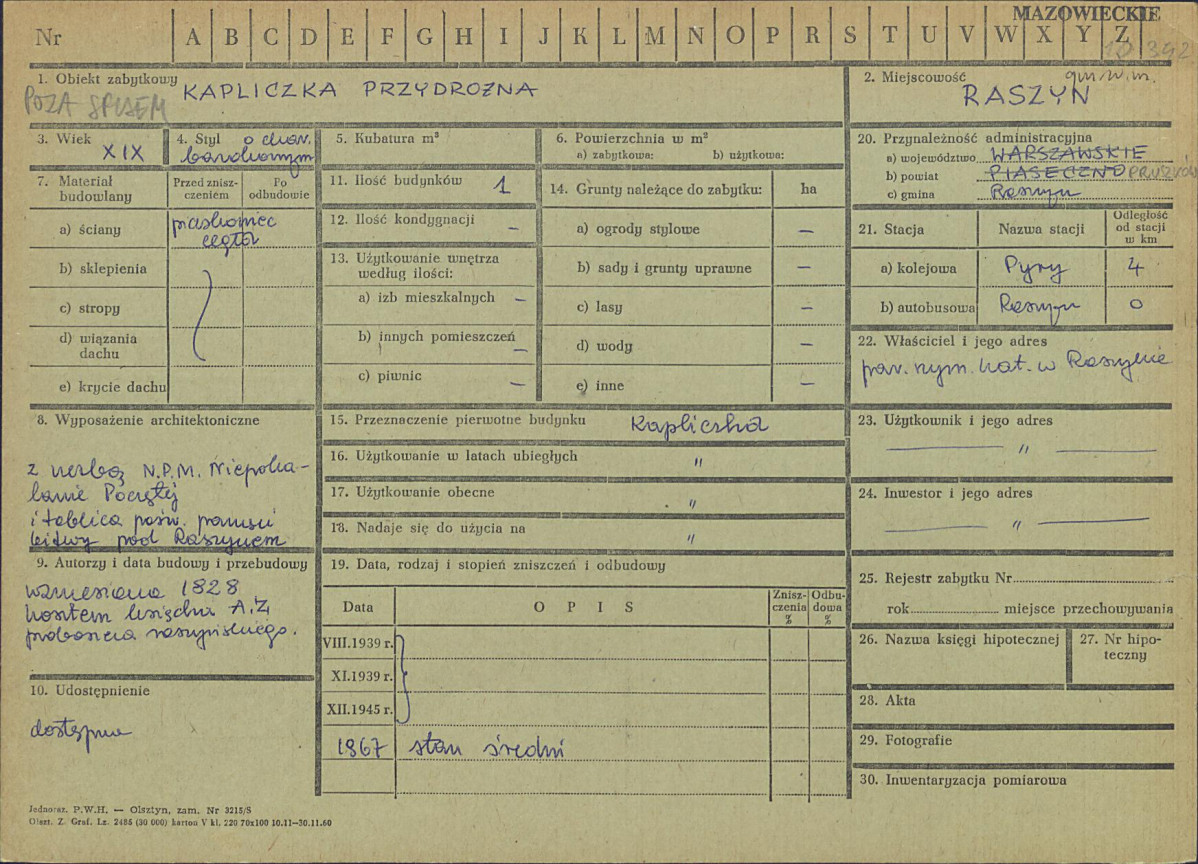 MAZOWIECKIE
Nr A B C D E F G H I J K L M N O P R S T U V W X Y Z
1. Obiekt zabytkowy
POZA SPISEM
KAPLICZKA PRZYDROŻNA
2. Miejscowość
gm. w. m.
RASZYN
3. Wiek
XIX
4. Styl o char.
barokowym
5. Kubatura m³
6. Powierzchnia w m²
a) zabytkowa: b) użytkowa:
20. Przynależność administracyjna
a) województwo WARSZAWSKIE
b) powiat PIASECZNO PRUSZKÓW
c) gmina Raszyn
7. Materiał
budowlany
Przed znisz-
czeniem
Po
odbudowie
a) ściany
piaskowiec
cegła
b) sklepienia
c) stropy
d) wiązania
dachu
e) krycie dachu
11. Ilość budynków 1
12. Ilość kondygnacji –
13. Użytkowanie wnętrza
według ilości:
a) izb mieszkalnych –
b) innych pomieszczeń –
c) piwnic –
14. Grunty należące do zabytku: ha
a) ogrody stylowe –
b) sady i grunty uprawne –
c) lasy –
d) wody –
e) inne –
21. Stacja
Nazwa stacji
Odległość
od stacji
w km
a) kolejowa Pyry 4
b) autobusowa Raszyn 0
22. Właściciel i jego adres
par. rzym. kat. w Raszynie
8. Wyposażenie architektoniczne
z rzeźbą N.P.M. Niepoka-
lanie Poczętej
i tablica pośw. pamięci
bitwy pod Raszynem
15. Przeznaczenie pierwotne budynku Kapliczka
16. Użytkowanie w latach ubiegłych "
17. Użytkowanie obecne "
18. Nadaje się do użycia na "
23. Użytkownik i jego adres
— " —
24. Inwestor i jego adres
— " —
9. Autorzy i data budowy i przebudowy
wzniesiona 1828
kosztem księdza A.Z.
proboszcza raszyńskiego.
19. Data, rodzaj i stopień zniszczeń i odbudowy
Data
OPIS
Znisz-
czenia
%
Odbu-
dowa
%
VIII.1939 r.
XI.1939 r.
XII.1945 r.
1867 stan średni
25. Rejestr zabytku Nr
rok miejsce przechowywania
26. Nazwa księgi hipotecznej
27. Nr hipo-
teczny
10. Udostępnienie
dostępna
28. Akta
29. Fotografie
30. Inwentaryzacja pomiarowa
Jednoraz. P.W.H. — Olsztyn, zam. Nr 3215/S
Olszt. Z. Graf. Lz. 2485 (30 000) karton V kl. 220 70x100 10.11—30.11.60